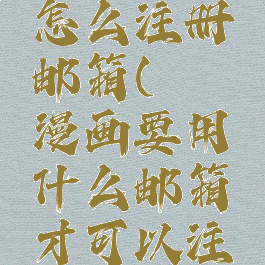 怎么注册
邮箱(
漫画要用
什么邮箱
才可以注